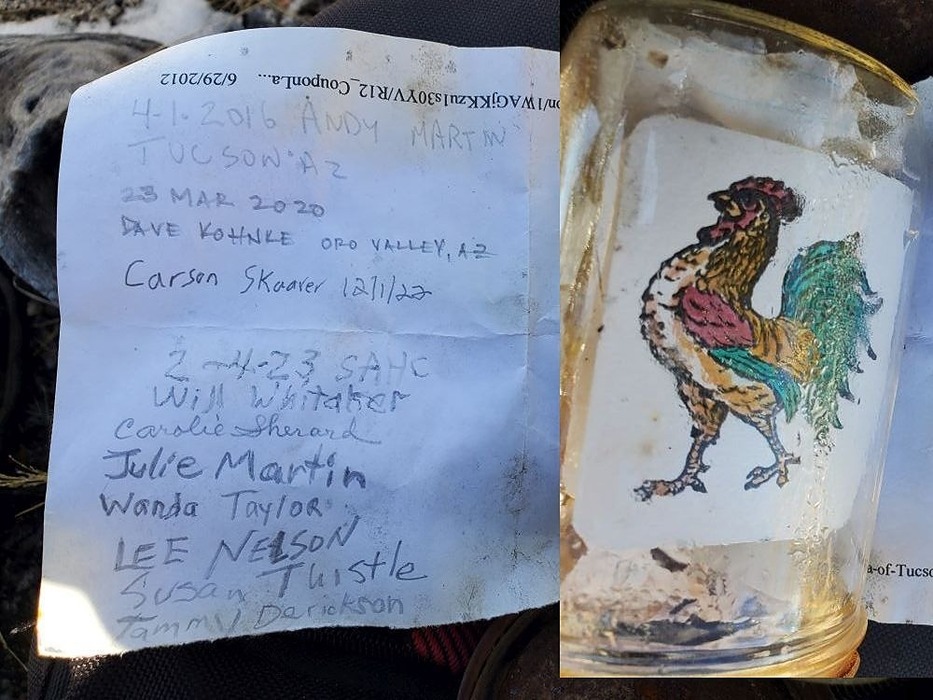 on/1WAGjKKzu1s30YV/R12_CouponLa... 6/29/2012
4-1-2016 ANDY MARTIN
TUCSON AZ
23 MAR 2020
DAVE KOHNKE ORO VALLEY, AZ
Carson Skaaver 12/1/22
2-4-23 SAHC
Will Whitaker
Carolie Sherard
Julie Martin
Wanda Taylor
LEE NELSON
Susan Thistle
Tammy Derickson
a-of-Tucso